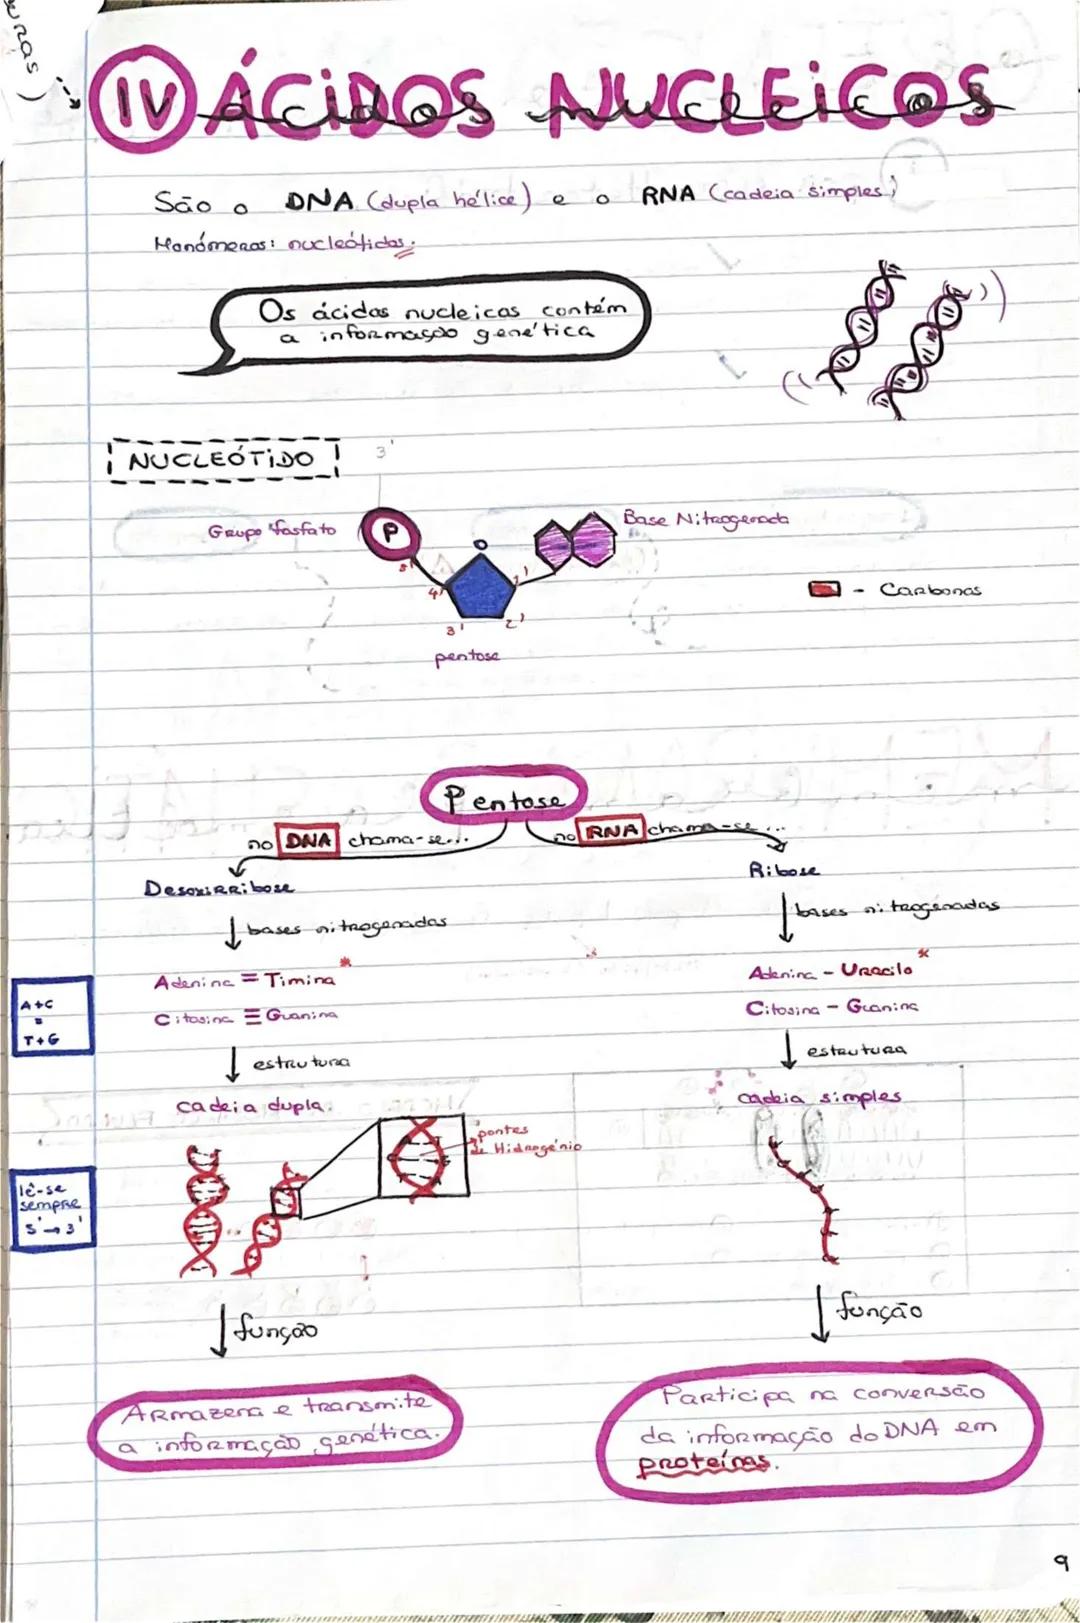 uras)
IV ÁCIDOS NUCLEiCOS
ácidos nucleicos
São o DNA (dupla hélice) e o RNA (cadeia simples)
Monómeros: nucleótidos.
Os ácidos nucleicos contém
a informação genética
NUCLEÓTiDO
3'
Grupo fosfato
P
Base Nitrogenada
O
5'
4'
1'
3'
2'
- Carbonos
pentose
Pentose
no DNA chama-se...
no RNA chama-se...
Desoxirribose
Ribose
bases nitrogenadas
bases nitrogénadas
Adenina = Timina *
Adenina - Uracilo *
Citosina ≡ Guanina
Citosina - Guanina
A+C
=
T+G
estrutura
estrutura
cadeia dupla.
cadeia simples
pontes
de Hidrogénio
lê-se
sempre
5'→3'
função
função
Armazena e transmite
a informação genética.
Participa na conversão
da informação do DNA em
proteínas.
9